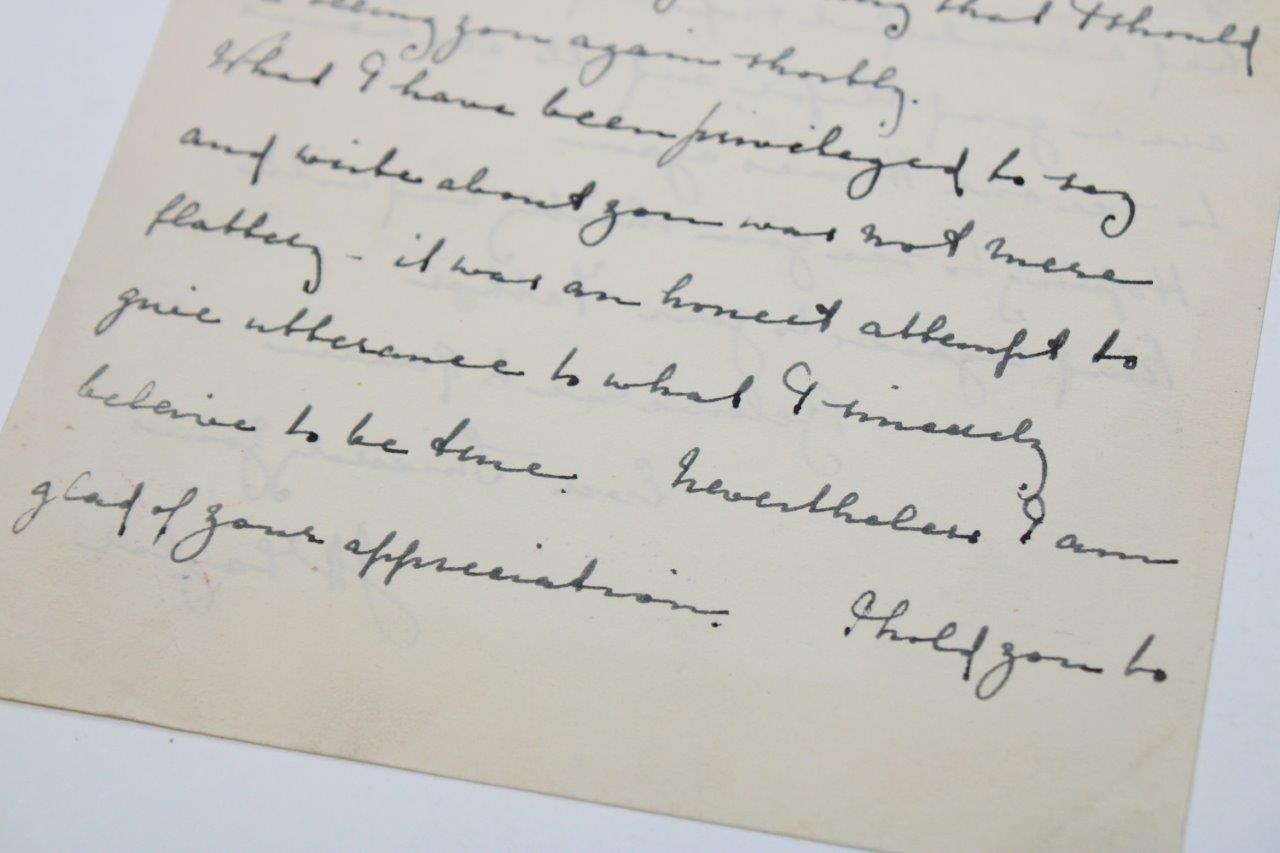 that I should
seeing you again shortly.
What I have been privileged to say
and write about you was not mere
flattery - it was an honest attempt to
give utterance to what I sincerely
beleive to be true. Nevertheless I am
glad of your appreciation. I hold you to